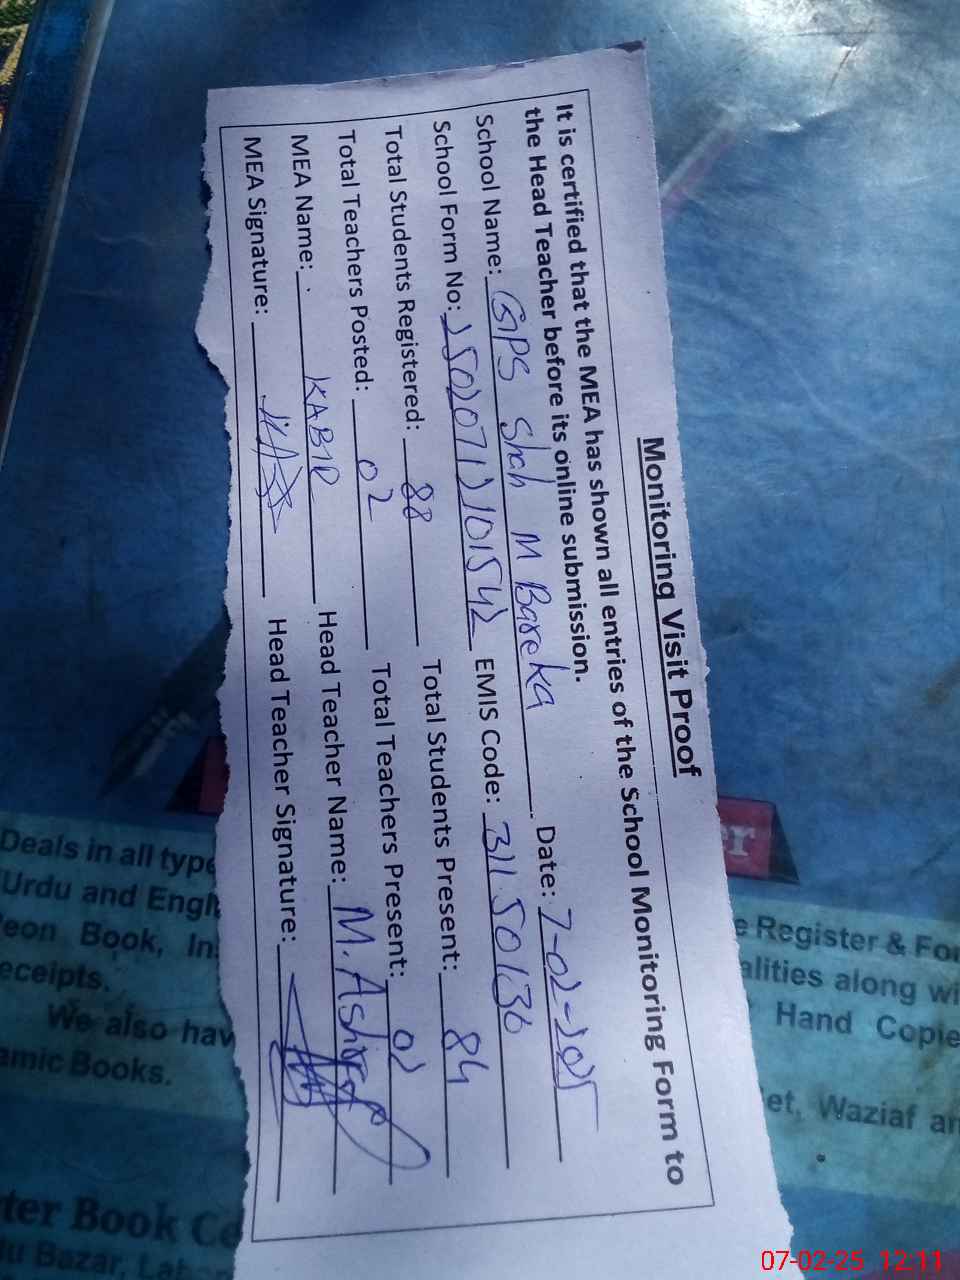 Monitoring Visit Proof
It is certified that the MEA has shown all entries of the School Monitoring Form to
the Head Teacher before its online submission.
School Name: GPS Shah M Bareka Date: 7-02-2025
School Form No: 25020712101542 EMIS Code: 31150136
Total Students Registered: 88 Total Students Present: 84
Total Teachers Posted: 02 Total Teachers Present: 02
MEA Name: KABIR Head Teacher Name: M. Ashraf
MEA Signature: Head Teacher Signature:
Deals in all
Urdu and
Book,
eceipts.
We also
Books.
Register &
along
Hand
Waziaf
Book
Bazar,
07-02-25 12:11